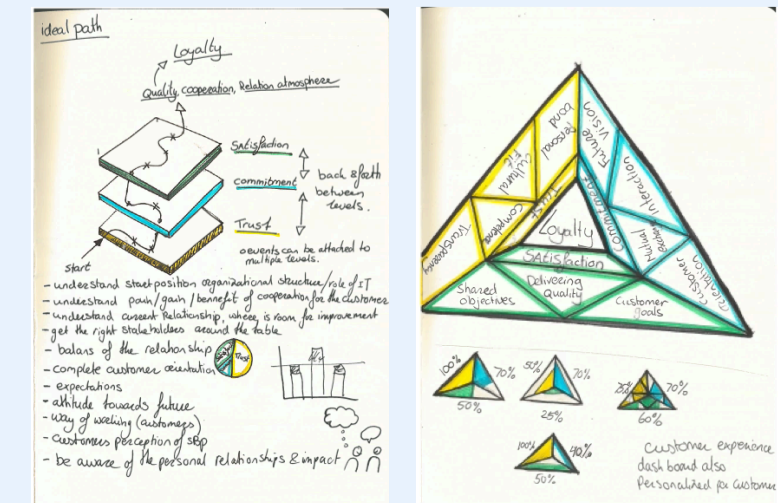 ideal path
Loyalty
Quality, cooperation, Relation atmosphere
Satisfaction
commitment
Trust
back & forth
between
levels.
events can be attached to
multiple levels.
start
- understand start position organizational structure/role of IT
- understand pain/gain/benefit of cooperation for the customer
- understand current Relationship, where is room for improvement
- get the right stakeholders around the table
- balans of the relationship
Trust
- complete customer orientation
- expectations
- attitude towards future
- way of working (customers)
- customers perception of sbp
- be aware of the personal relationships & impact
Personal
bond
Future
Vision
Cultural
Fit
Trust
Competence
Transparency
Commitment
Interaction
Mutual
Customer
orientation
Loyalty
Satisfaction
Shared
objectives
Delivering
Quality
Customer
goals
100%
70%
50%
50%
70%
25%
70%
60%
100%
40%
50%
Customer experience
dash board also
Personalized for customer